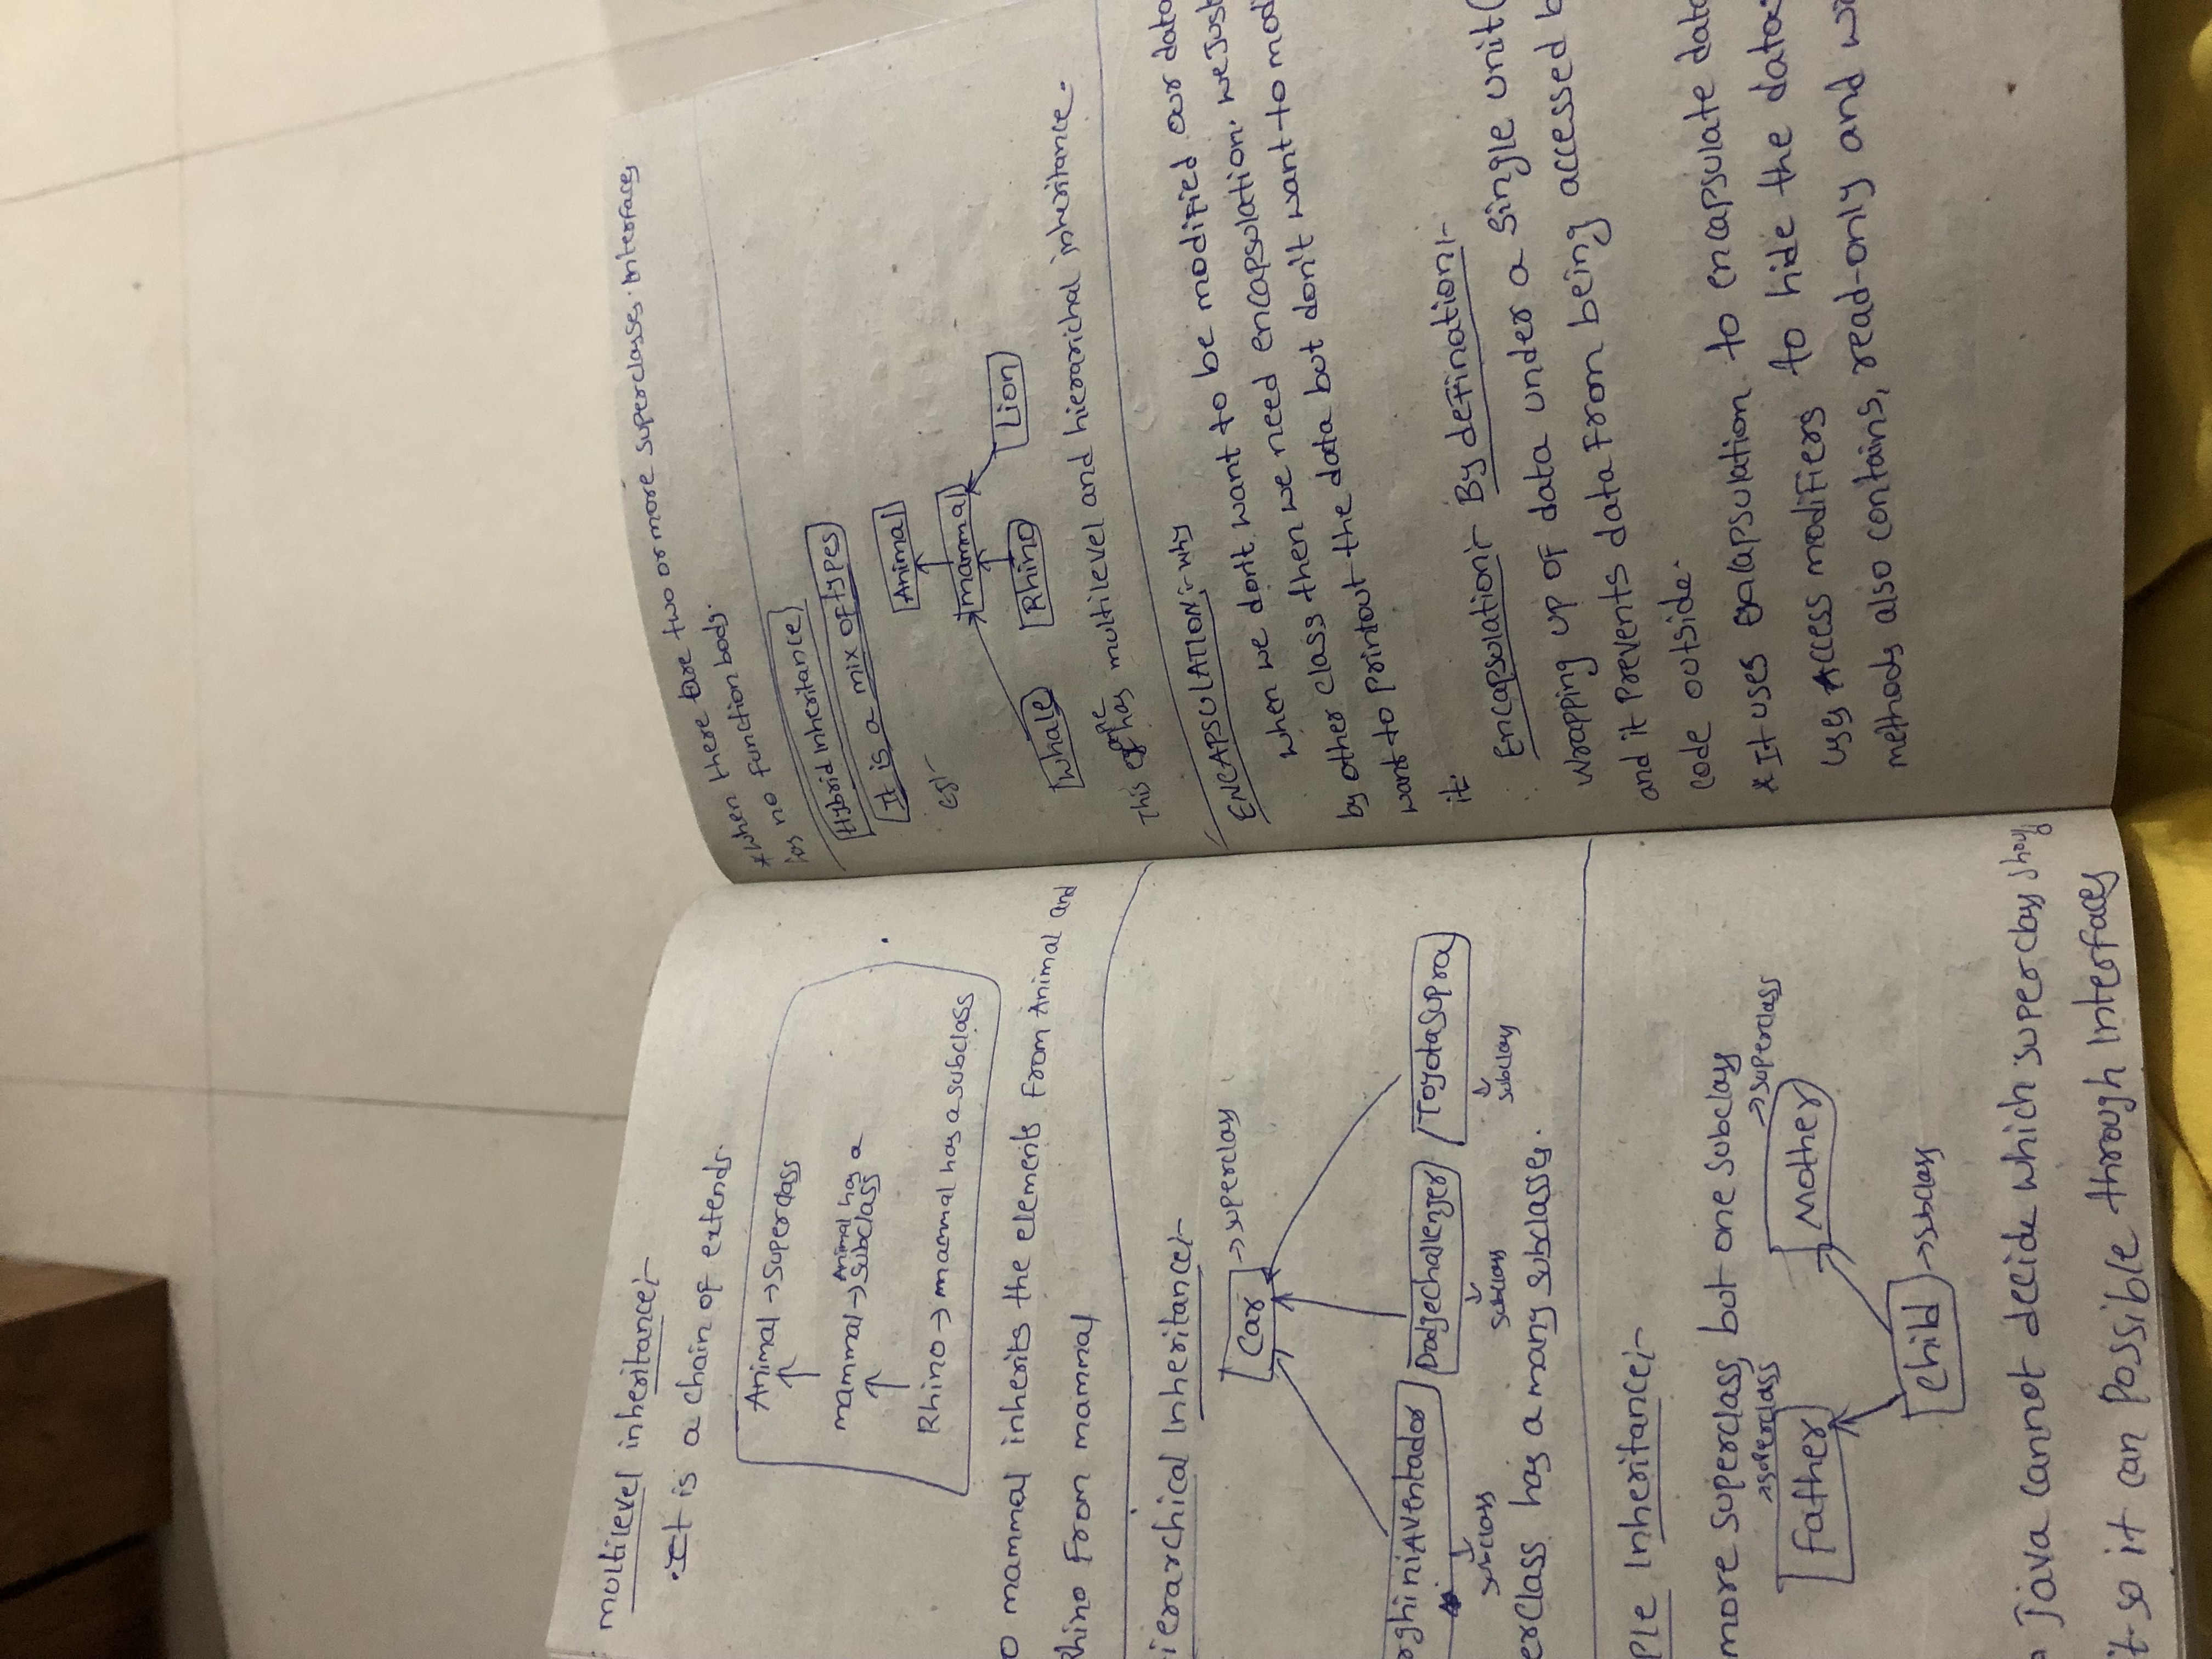 multilevel inheritance:-
·It is a chain of extends.
Animal → Superclass
mammal → Animal has a subclass
Rhino → mammal has a subclass
o mammal inherits the elements from Animal and
Rhino From mammal
ierarchical Inheritance:-
Car → superclass
rghiniAventador DodjeChallenjer ToyotaSupra
subclass subclass subclass
erclass has a many subclasses.
ple Inheritance:-
more superclass, but one subclass
→superclass →superclass
Father Mother
child → subclass
Java cannot decide which superclass should
it so it can Possible through Interfaces
*when there are two or more superclasses. Interfaces
has no function body.
Hybrid Inheritance
It is a mix of types
Eg:-
Animal
mammal
whale Rhino Lion
This one has multilevel and hierarichal inheritance.
ENCAPSULATION:- why
when we don't want to be modified our data
by other class then we need encapsulation. we Just
want to Printout the data but don't want to modi
it.
Encapsulation:- By defination:-
wrapping up of data under a single unit(
and it Prevents data From being accessed b
code outside.
*It uses encapsulation to encapsulate data
uses Access modifiers to hide the data.
methods also contains, read-only and wr